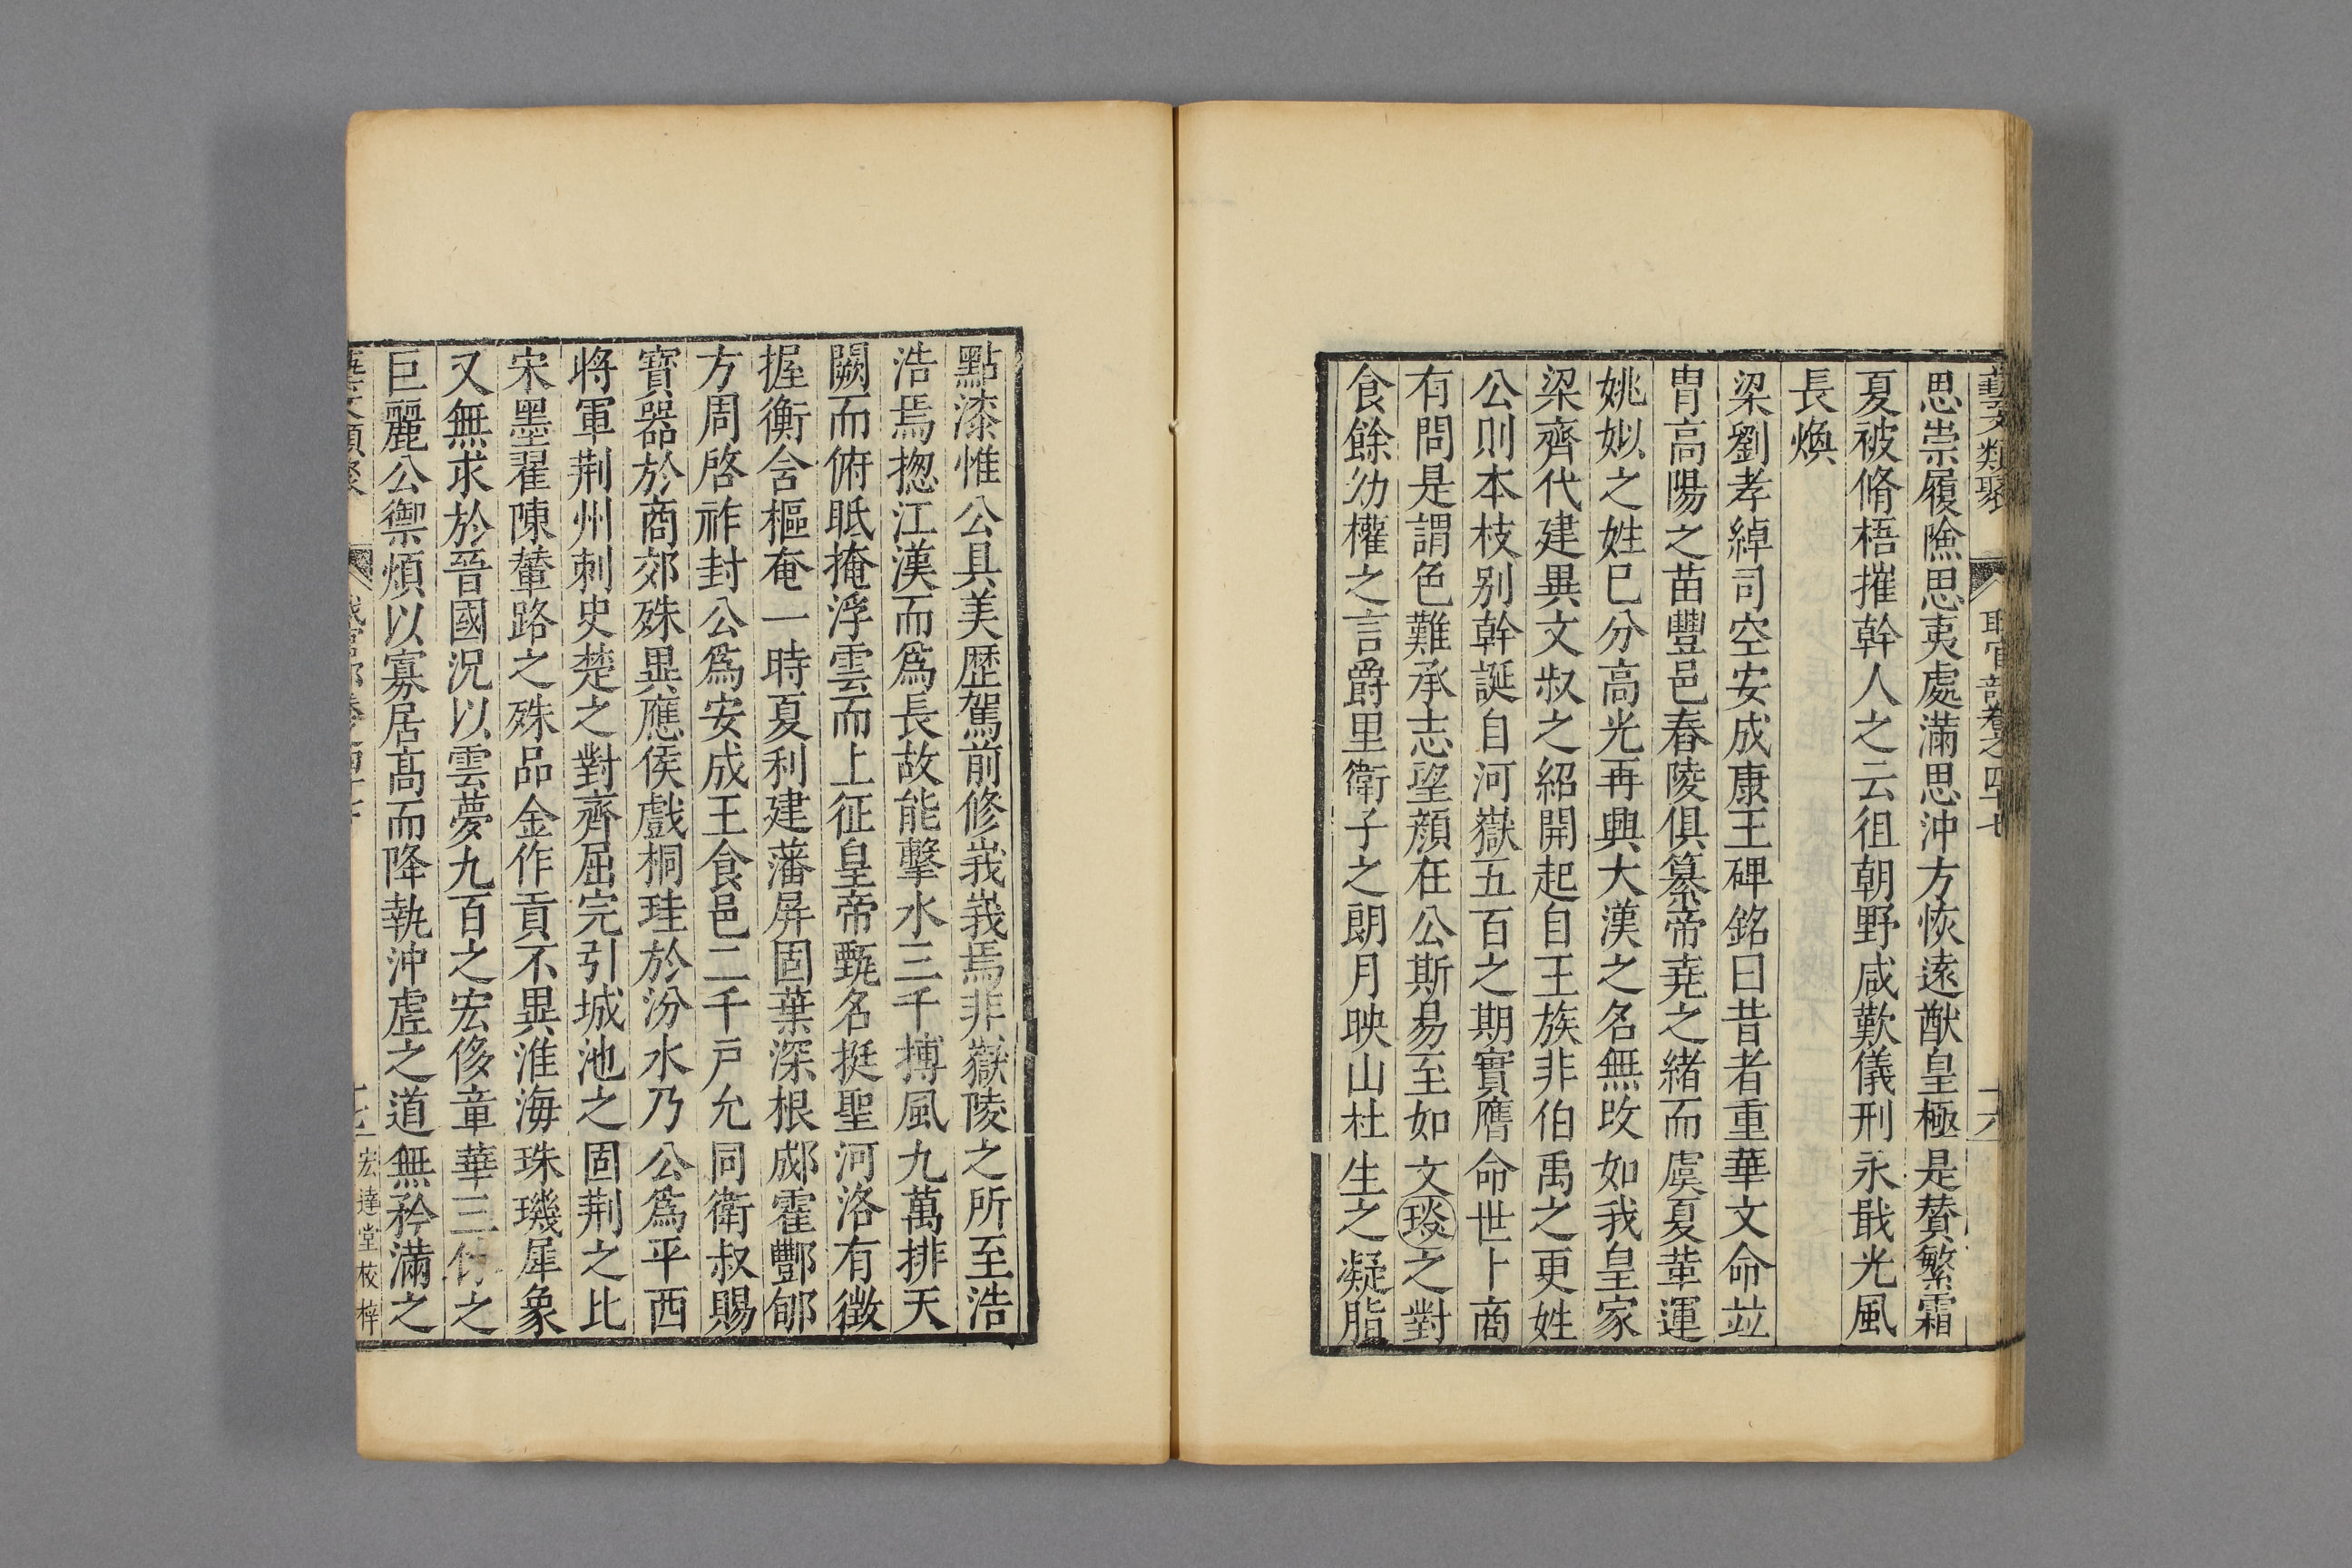 藝文類聚 職官部卷之四十七 十六
思崇履險思夷處滿思沖方恢遠猷皇極是賛繁霜
夏被脩梧摧幹人之云徂朝野咸歎儀刑永戢光風
長煥
梁劉孝綽司空安成康王碑銘曰昔者重華文命竝
胄高陽之苗豐邑舂陵俱纂帝堯之緒而虞夏革運
姚姒之姓巳分高光再興大漢之名無改如我皇家
梁齊代建異文叔之紹開起自王族非伯禹之更姓
公則本枝别幹誕自河嶽五百之期實膺命世卜商
有問是謂色難承志望顔在公斯易至如文琰之對
食餘幼權之言爵里衛子之朗月映山杜生之凝脂
點漆惟公具美歴駕前修峩峩焉非嶽陵之所至浩
浩焉揔江漢而爲長故能擊水三千摶風九萬排天
闕而俯眡掩浮雲而上征皇帝甄名挺聖河洛有徴
握衡含樞奄一時夏利建藩屏固葉深根郕霍酆郇
方周啓祚封公爲安成王食邑二千戸允同衛叔賜
寳器於商郊殊異應侯戲桐珪於汾水乃公爲平西
將軍荆州刺史楚之對齊屈完引城池之固荆之比
宋墨翟陳輦路之殊品金作貢不異淮海珠璣犀象
又無求於晉國況以雲夢九百之宏侈章華三休之
巨麗公禦煩以寡居髙而降執沖虗之道無矜滿之
宏達堂校梓